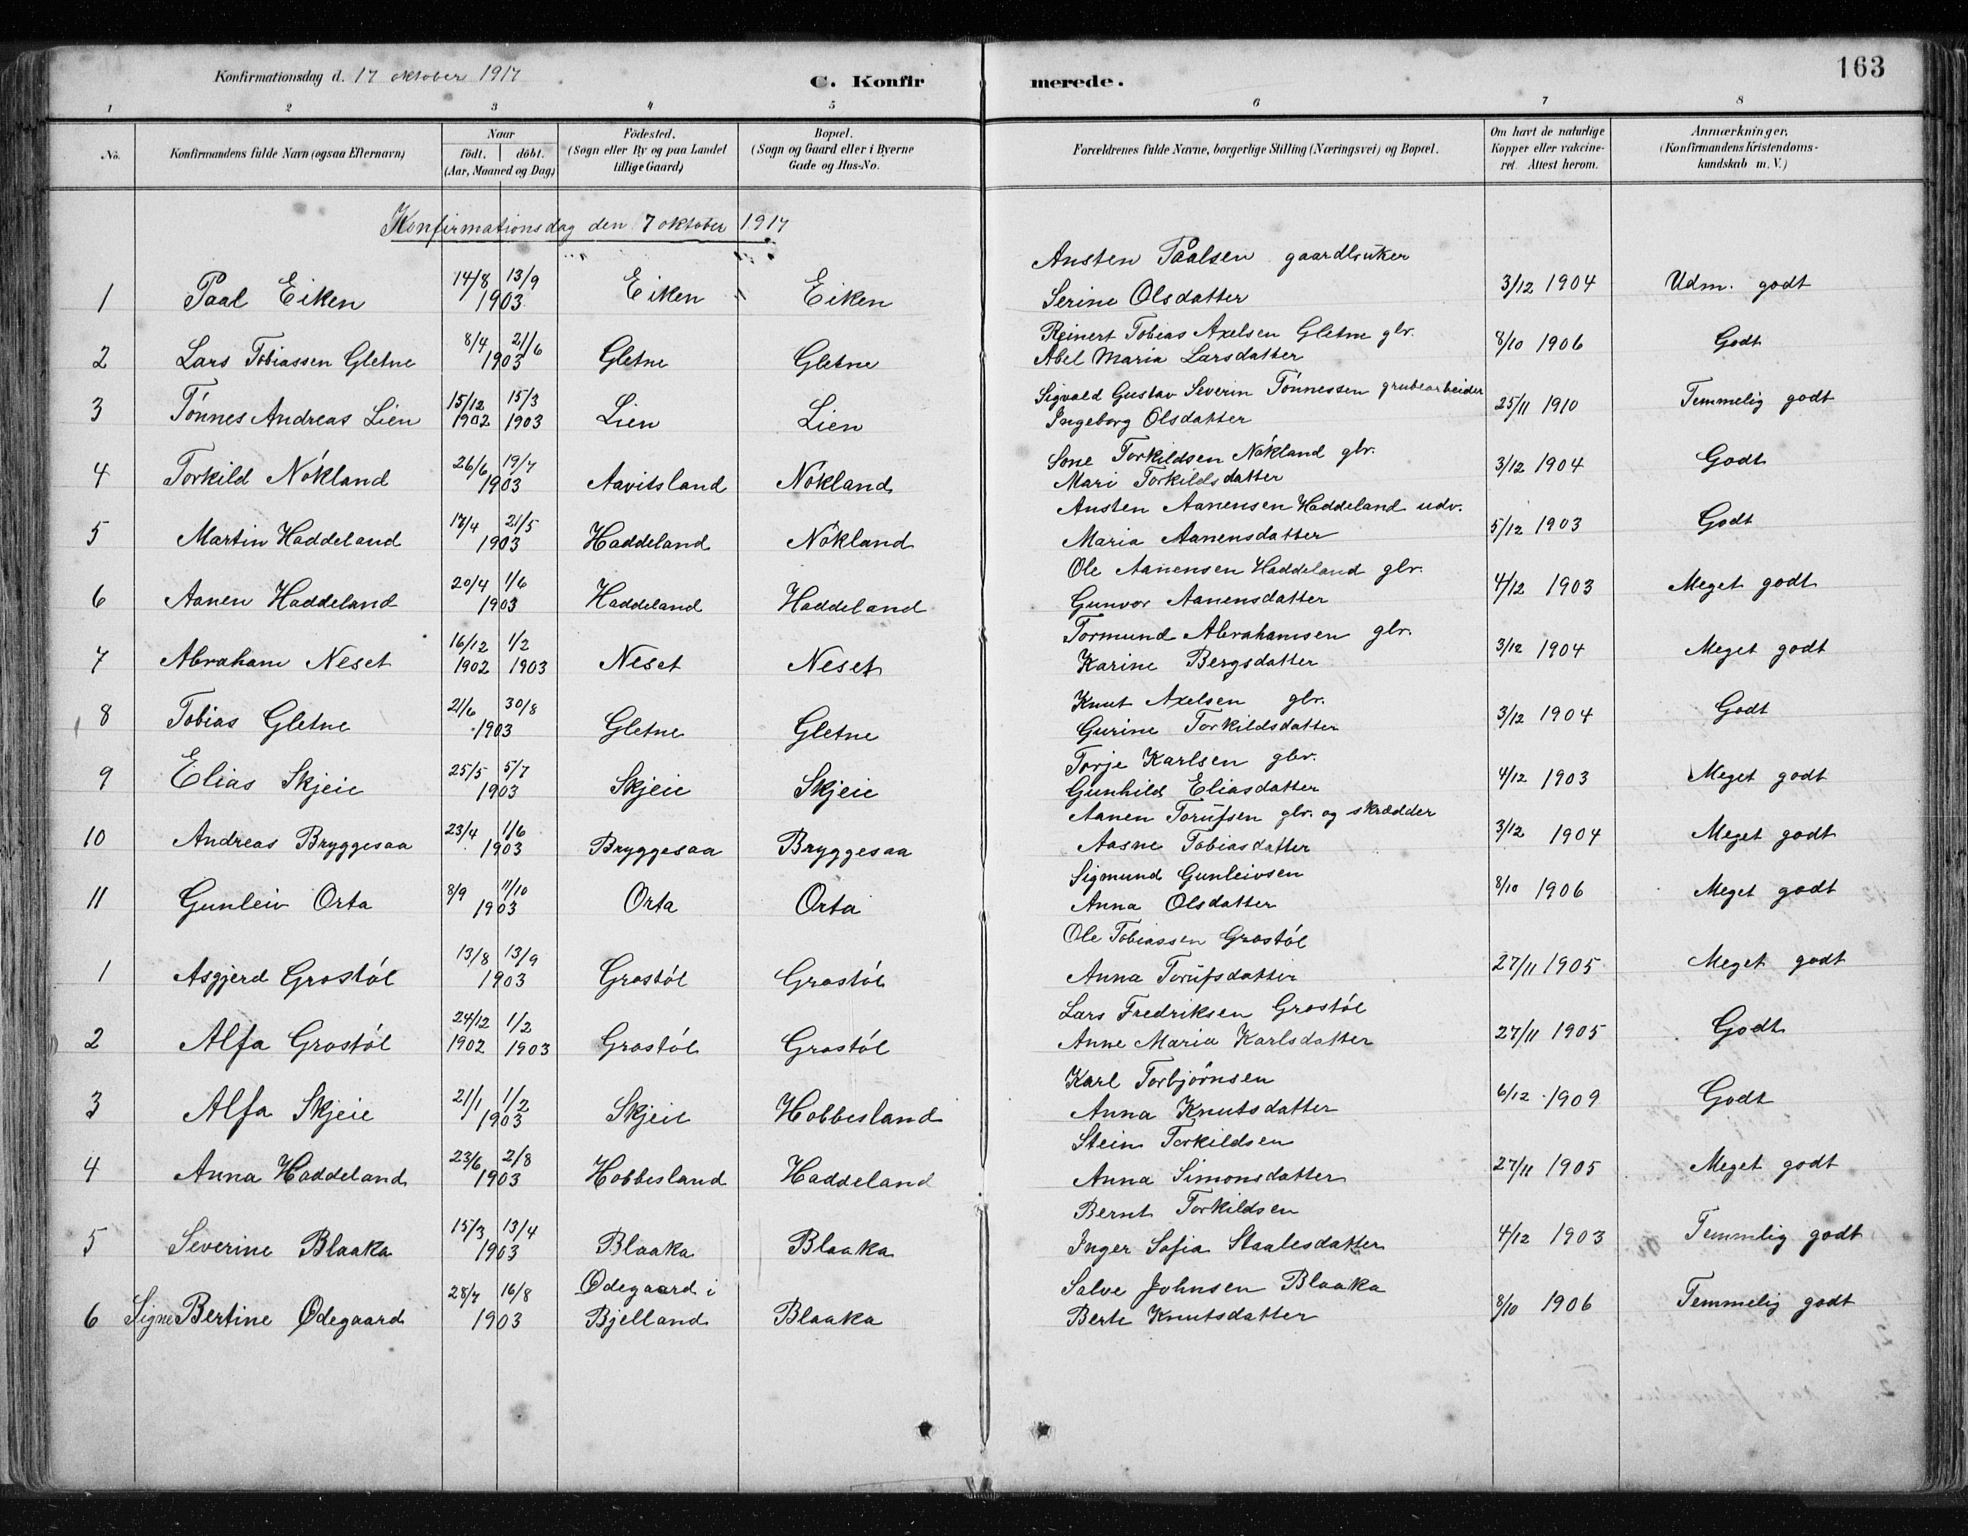 163
Konfirmationsdag d. 17 oktober 1917
C. Konfir merede.
1 2 3 4 5 6 7 8
No. Konfirmandens fulde Navn (ogsaa Efternavn)
Naar
födt. döbt.
(Aar, Maaned og Dag)
Födested.
(Sogn eller By og paa Landet
tillige Gaard)
Bopæl.
(Sogn og Gaard eller i Byerne
Gade og Hus-No.
Forældrenes fulde Navne, borgerlige Stilling (Næringsvei) og Bopæl.
Om havt de naturlige
Kopper eller vakcine-
ret. Attest herom.
Anmærkninger.
(Konfirmandens Kristendoms-
kundskab m. V.)
Konfirmationsdag den 7 oktober 1917
1 Paal Eiken 14/8 13/9 1903 Eiken Eiken Austen Paalsen gaardbruker
Serine Olsdatter 3/12 1904 Udm. godt
2 Lars Tobiassen Gletne 8/4 21/6 1903 Gletne Gletne Reinert Tobias Axelsen Gletne gbr.
Abel Maria Larsdatter 8/10 1906 Godt
3 Tönnes Andreas Lien 15/12 1902 15/3 1903 Lien Lien Sigvald Gustav Severin Tönnessen grubearbeider
Ingeborg Olsdatter 25/11 1910 Temmelig godt
4 Torkild Nökland 26/6 19/7 1903 Aavitsland Nökland Sone Torkildsen Nökland gbr.
Mari Torkildsdatter 3/12 1904 Godt
5 Martin Haddeland 17/4 21/5 1903 Haddeland Nökland Austen Aanensen Haddeland udv.
Maria Aanensdatter 5/12 1903 Godt
6 Aanen Haddeland 20/4 1/6 1903 Haddeland Haddeland Ole Aanensen Haddeland gbr.
Gunvor Aanensdatter 4/12 1903 Meget godt
7 Abraham Neset 16/12 1902 1/2 1903 Neset Neset Tormund Abrahamsen gbr.
Karine Bergsdatter 3/12 1904 Meget godt
8 Tobias Gletne 21/6 30/8 1903 Gletne Gletne Knut Axelsen gbr.
Gurine Torkildsdatter 3/12 1904 Godt
9 Elias Skjeie 25/5 5/7 1903 Skjeie Skjeie Torje Karlsen gbr.
Gunhild Eliasdatter 4/12 1903 Meget godt
10 Andreas Bryggesaa 23/4 1/6 1903 Bryggesaa Bryggesaa Aanen Torufsen gbr. og skrædder
Aasne Tobiasdatter 3/12 1904 Meget godt
11 Gunleiv Orta 8/9 11/10 1903 Orta Orta Sigmund Gunleivsen
Anna Olsdatter 8/10 1906 Meget godt
1 Asgjerd Grostöl 13/8 13/9 1903 Grostöl Grostöl Ole Tobiassen Grostöl
Anna Torufsdatter 27/11 1905 Meget godt
2 Alfa Grostöl 24/12 1902 1/2 1903 Grostöl Grostöl Lars Fredriksen Grostöl
Anne Maria Karlsdatter 27/11 1905 Godt
3 Alfa Skjeie 21/1 1/2 1903 Skjeie Hobbesland Karl Torbjörnsen
Anna Knutsdatter 6/12 1909 Godt
4 Anna Haddeland 23/6 2/8 1903 Hobbesland Haddeland Stein Torkildsen
Anna Simonsdatter 27/11 1905 Meget godt
5 Severine Blaaka 15/3 13/4 1903 Blaaka Blaaka Bernt Torkildsen
Inger Sofia Staalesdatter 4/12 1903 Temmlig godt
6 Signe Bertine Ödegaard 28/7 16/8 1903 Ödegaard i
Bjelland Blaaka Salve Johnsen Blaaka
Berte Knutsdatter 8/10 1906 Temmelig godt